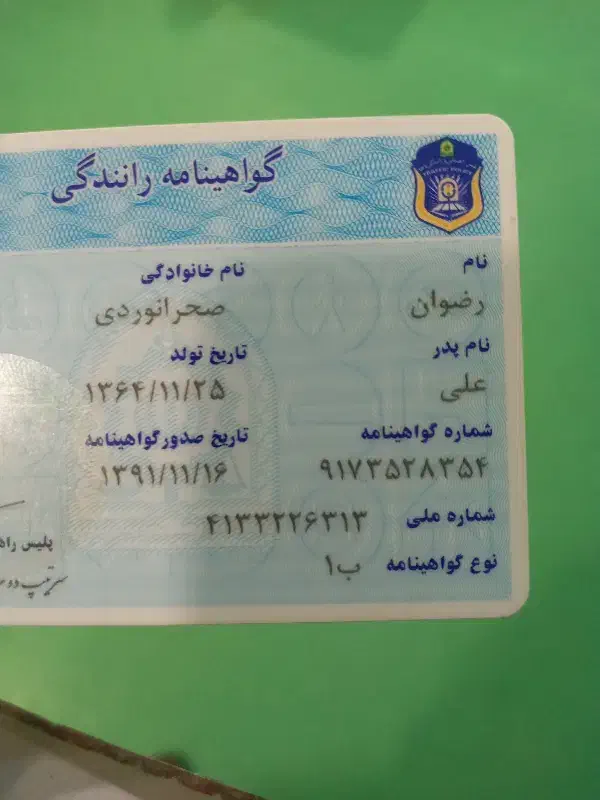 گواهینامه رانندگی
TRAFFIC POLICE
نام
رضوان
نام خانوادگی
صحرانوردی
نام پدر
علی
تاریخ تولد
۱۳۶۴/۱۱/۲۵
شماره گواهینامه
۹۱۷۳۵۲۸۳۵۴
تاریخ صدور گواهینامه
۱۳۹۱/۱۱/۱۶
شماره ملی ۴۱۳۳۲۲۶۳۱۳
نوع گواهینامه ب۱
پلیس
سرتیپ دوم